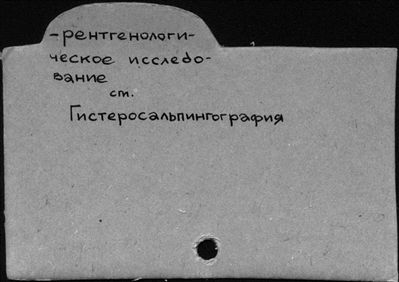 -рентгенологи-
ческое исследо-
вание
ст.
Гистеросальпингография